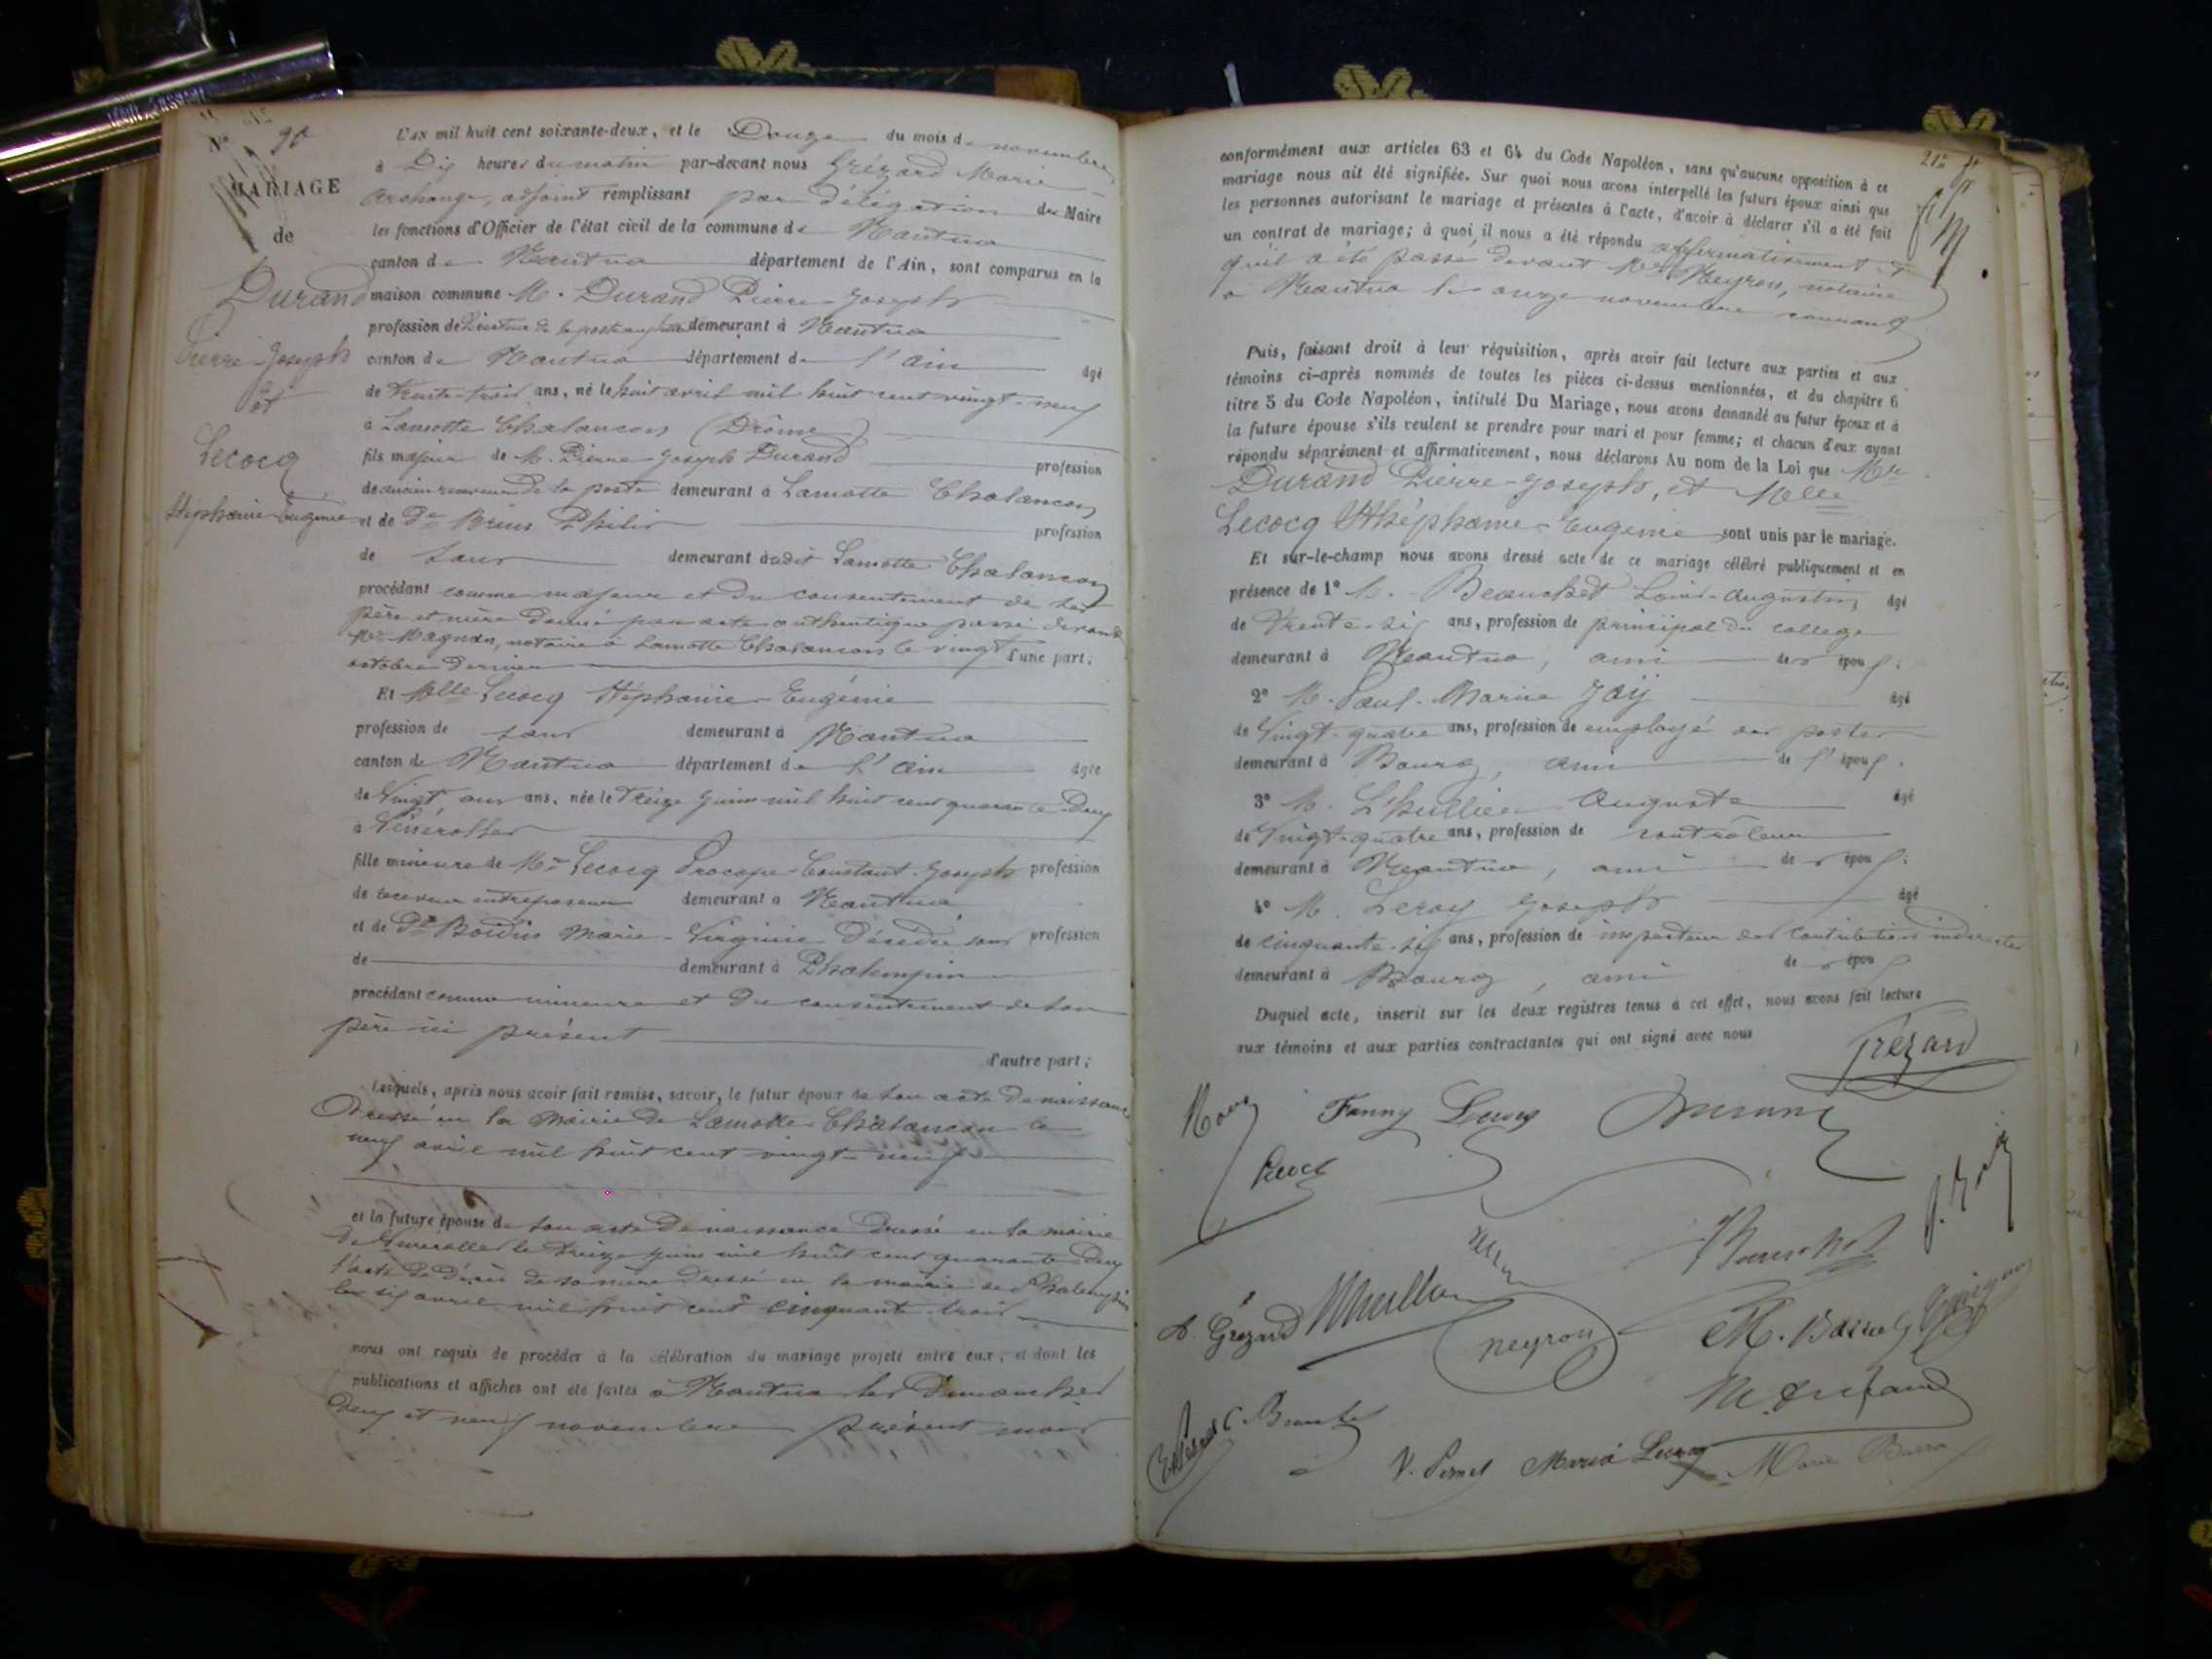 No 90
MARIAGE
de
Durand
Pierre-Joseph
et
Lecocq
Stéphanie Eugénie
L'AN mil huit cent soixante-deux, et le Douze du mois de novembre
à Dix heures du matin par-devant nous Grézard Marie
Archange, adjoint remplissant par délégation du Maire
les fonctions d'Officier de l'état civil de la commune de Nantua
canton de Nantua département de l'Ain, sont comparus en la
maison commune M. Durand Pierre-Joseph
profession de Directeur de la poste demeurant à Nantua
canton de Nantua département de l'ain âgé
de trente-trois ans, né le huit avril mil huit cent vingt-neuf
à Lamotte Chalancon (Drôme)
fils majeur de M. Pierre-Joseph Durand profession
de ancien receveur de la poste demeurant à Lamotte Chalancon
et de De Philis profession
de sans demeurant audit Lamotte Chalancon
procédant comme majeur et du consentement de ses
père et mère donné par acte authentique passé devant
Me Magnan, notaire à Lamotte Chalancon le vingt
octobre dernier d'une part;
Et Melle Lecocq Stéphanie-Eugénie
profession de sans demeurant à Nantua
canton de Nantua département de l'ain âgée
de Vingt ans, née le treize juin mil huit cent quarante deux
à
fille mineure de Mr Lecocq Procope-Constant-Joseph profession
de receveur entreposeur demeurant à Nantua
et de De Boidin Marie-Virginie Désirée sans profession
de demeurant à Phalempin
procédant comme mineure et du consentement de son
père ici présent
d'autre part;
Lesquels, après nous avoir fait remise, savoir, le futur époux de son acte de naissance
Dressé en la Mairie de Lamotte Chalancon le
neuf avril mil huit cent vingt-neuf
et la future épouse de son acte de naissance dressé en la mairie
de le treize juin mil huit cent quarante deux
l'acte de décès de sa mère dressé en la mairie de Phalempin
le six avril mil huit cent cinquante-trois
nous ont requis de procéder à la célébration du mariage projeté entre eux, et dont les
publications et affiches ont été faites à Nantua les Dimanches
deux et neuf novembre présent mois
conformément aux articles 63 et 64 du Code Napoléon, sans qu'aucune opposition à ce
mariage nous ait été signifiée. Sur quoi nous avons interpellé les futurs époux ainsi que
les personnes autorisant le mariage et présentes à l'acte, d'avoir à déclarer s'il a été fait
un contrat de mariage; à quoi il nous a été répondu affirmativement et
qu'il a été passé devant Me Neyron, notaire
à Nantua le onze novembre courant
Puis, faisant droit à leur réquisition, après avoir fait lecture aux parties et aux
témoins ci-après nommés de toutes les pièces ci-dessus mentionnées, et du chapitre 6
titre 5 du Code Napoléon, intitulé Du Mariage, nous avons demandé au futur époux et à
la future épouse s'ils veulent se prendre pour mari et pour femme; et chacun d'eux ayant
répondu séparément et affirmativement, nous déclarons Au nom de la Loi que Mr
Durand Pierre-Joseph, et Melle
Lecocq Sthéphanie-Eugénie sont unis par le mariage.
Et sur-le-champ nous avons dressé acte de ce mariage célébré publiquement et en
présence de 1° M. Beauchet Louis-Augustin âgé
de Trente-six ans, profession de principal du collège
demeurant à Nantua, ami des époux;
2° M. Paul-Marie Jaÿ âgé
de Vingt-quatre ans, profession de employé des postes
demeurant à Bourg, ami de l'époux.
3° M. L'huillier Auguste âgé
de Vingt-quatre ans, profession de contrôleur
demeurant à Nantua, ami des époux;
4° M. Leroy Joseph âgé
de cinquante-six ans, profession de inspecteur des contributions indirectes
demeurant à Bourg, ami des époux
Duquel acte, inscrit sur les deux registres tenus à cet effet, nous avons fait lecture
aux témoins et aux parties contractantes qui ont signé avec nous
Grézard
Fanny Lecocq Durand
A. Grézard
Neyron
V. Pernet Maria Lecocq Marie